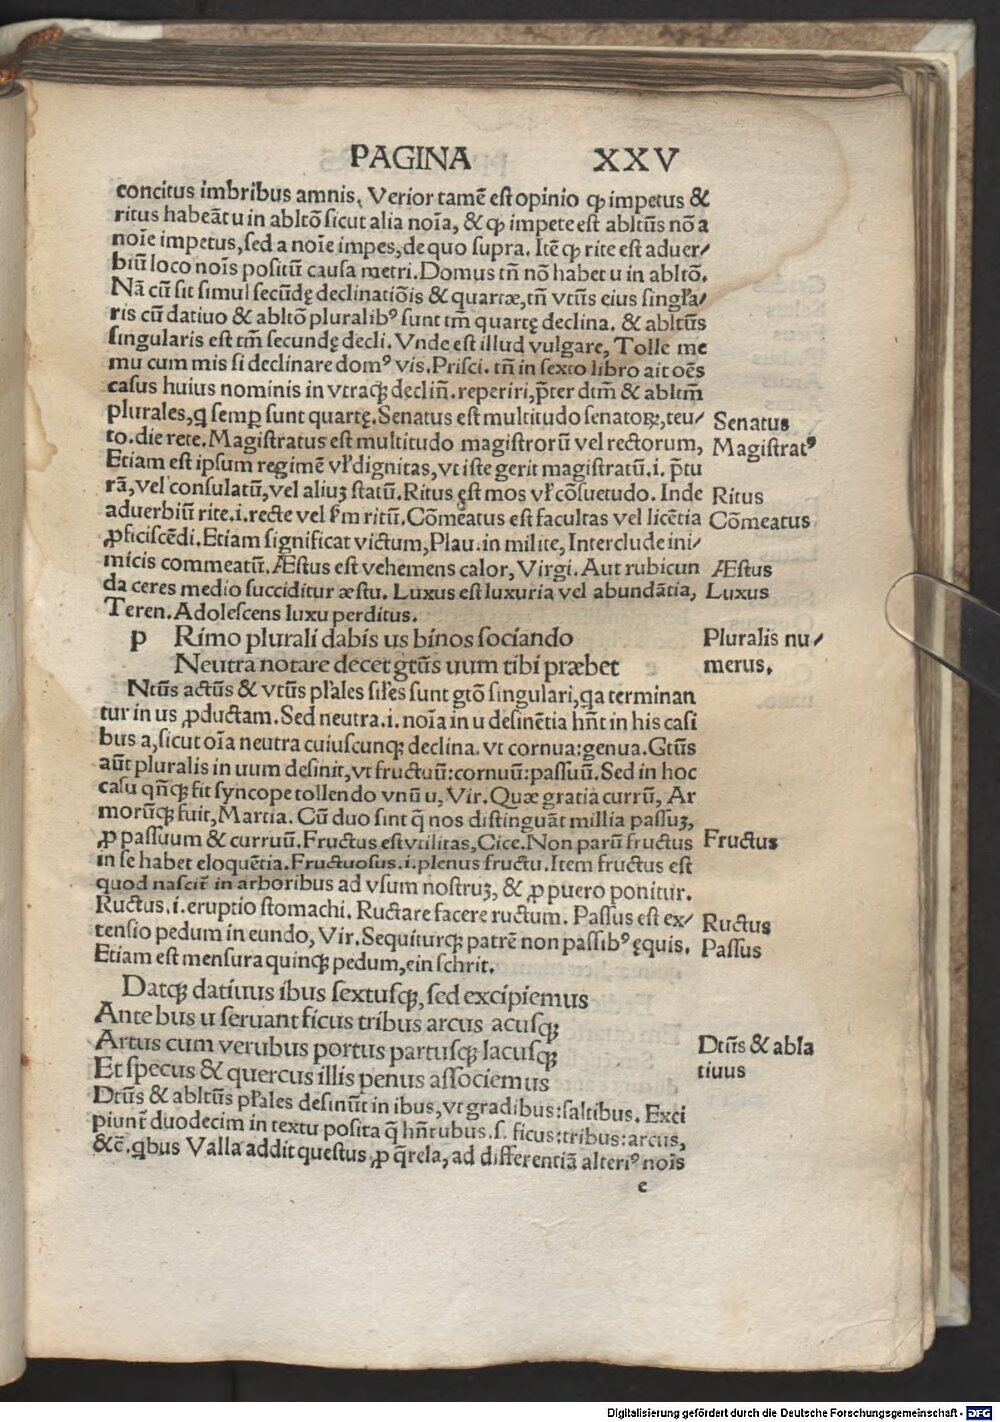 PAGINA XXV
concitus imbribus amnis. Verior tamē est opinio ꝙ impetus &
ritus habeāt u in abltō sicut alia noīa, & ꝙ impete est abltūs nō a
noīe impetus, sed a noīe impes, de quo supra. Itē ꝙ rite est aduer/
biū loco noīs positū causa metri. Domus tn̄ nō habet u in abltō.
Nā cū sit simul secūdę declinatiōis & quartæ, tn̄ vtūs eius singłа/
ris cū datiuo & abltō pluralibꝰ sunt tm̄ quartę declina. & abltūs
singularis est tm̄ secundę decli. Vnde est illud vulgare, Tolle me
mu cum mis si declinare domꝰ vis. Prisci. tn̄ in sexto libro ait oēs
casus huius nominis in vtraqꝫ decliñ. reperiri, p̄ter dtm̄ & abltm̄
plurales, q semꝑ sunt quartę. Senatus est multitudo senatoꝝ, teu/
to. die rete. Magistratus est multitudo magistrorū vel rectorum,
Etiam est ipsum regimē vł dignitas, vt iste gerit magistratū. i. p̄tu
rā, vel consulatū, vel aliuꝫ statū. Ritus est mos vł cōsuetudo. Inde
aduerbiū rite. i. recte vel ſm ritū. Cōmeatus est facultas vel licētia
ꝓficiscēdi. Etiam significat victum, Plau. in milite, Interclude ini/
micis commeatū. Æstus est vehemens calor, Virgi. Aut rubicun
da ceres medio succiditur æstu. Luxus est luxuria vel abundātia,
Teren. Adolescens luxu perditus.
Senatus
Magistratꝰ
Ritus
Cōmeatus
Æstus
Luxus
p Rimo plurali dabis us binos sociando
Neutra notare decet gtūs uum tibi præbet
Pluralis nu/
merus.
Ntūs actūs & vtūs płales siłes sunt gtō singulari, qa terminan
tur in us ꝓductam. Sed neutra. i. noīa in u desinētia hn̄t in his casi
bus a, sicut oīa neutra cuiuscunqꝫ declina. vt cornua: genua. Gtūs
aūt pluralis in uum desinit, vt fructuū: cornuū: passuū. Sed in hoc
casu qn̄qꝫ fit syncope tollendo vnū u, Vir. Quæ gratia currū, Ar
morūqꝫ fuit, Martia. Cū duo sint q̄ nos distinguāt millia passuꝫ,
ꝓ passuum & curruū. Fructus est vtilitas, Cice. Non parū fructus
in se habet eloquētia. Fructuosus. i. plenus fructu. Item fructus est
quod nascit̄ in arboribus ad vsum nostruꝫ, & ꝓ puero ponitur.
Ructus. i. eruptio stomachi. Ructare facere ructum. Passus est ex/
tensio pedum in eundo, Vir. Sequiturqꝫ patrē non passibꝰ ęquis.
Etiam est mensura quinqꝫ pedum, ein schrit.
Fructus
Ructus
Passus
Datqꝫ datiuus ibus sextusqꝫ, sed excipiemus
Ante bus u seruant ficus tribus arcus acusqꝫ
Artus cum verubus portus partusqꝫ lacusqꝫ
Et specus & quercus illis penus associemus
Dtūs & abla
tiuus
Dtūs & abltūs płales desinūt in ibus, vt gradibus: saltibus. Exci
piunt̄ duodecim in textu posita q̄ hn̄t ubus. s. ficus: tribus: arcus,
&c̄. qbus Valla addit questus ꝓ q̄rela, ad differentiā alteriꝰ noīs
e
Digitalisierung gefördert durch die Deutsche Forschungsgemeinschaft - DFG